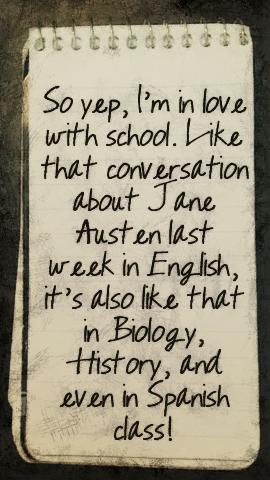 So yep, I'm in love
with school. Like
that conversation
about Jane
Austen last
week in English,
it's also like that
in Biology,
History, and
even in Spanish
class!